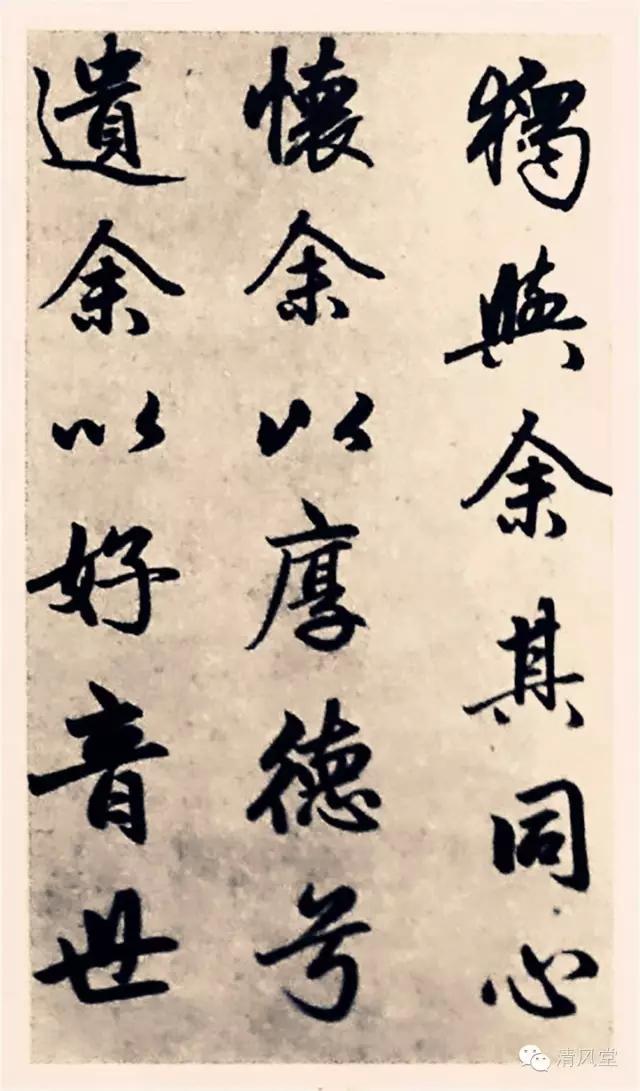 獨與余其同心
懷余以厚德兮
遺余以好音世
清风堂